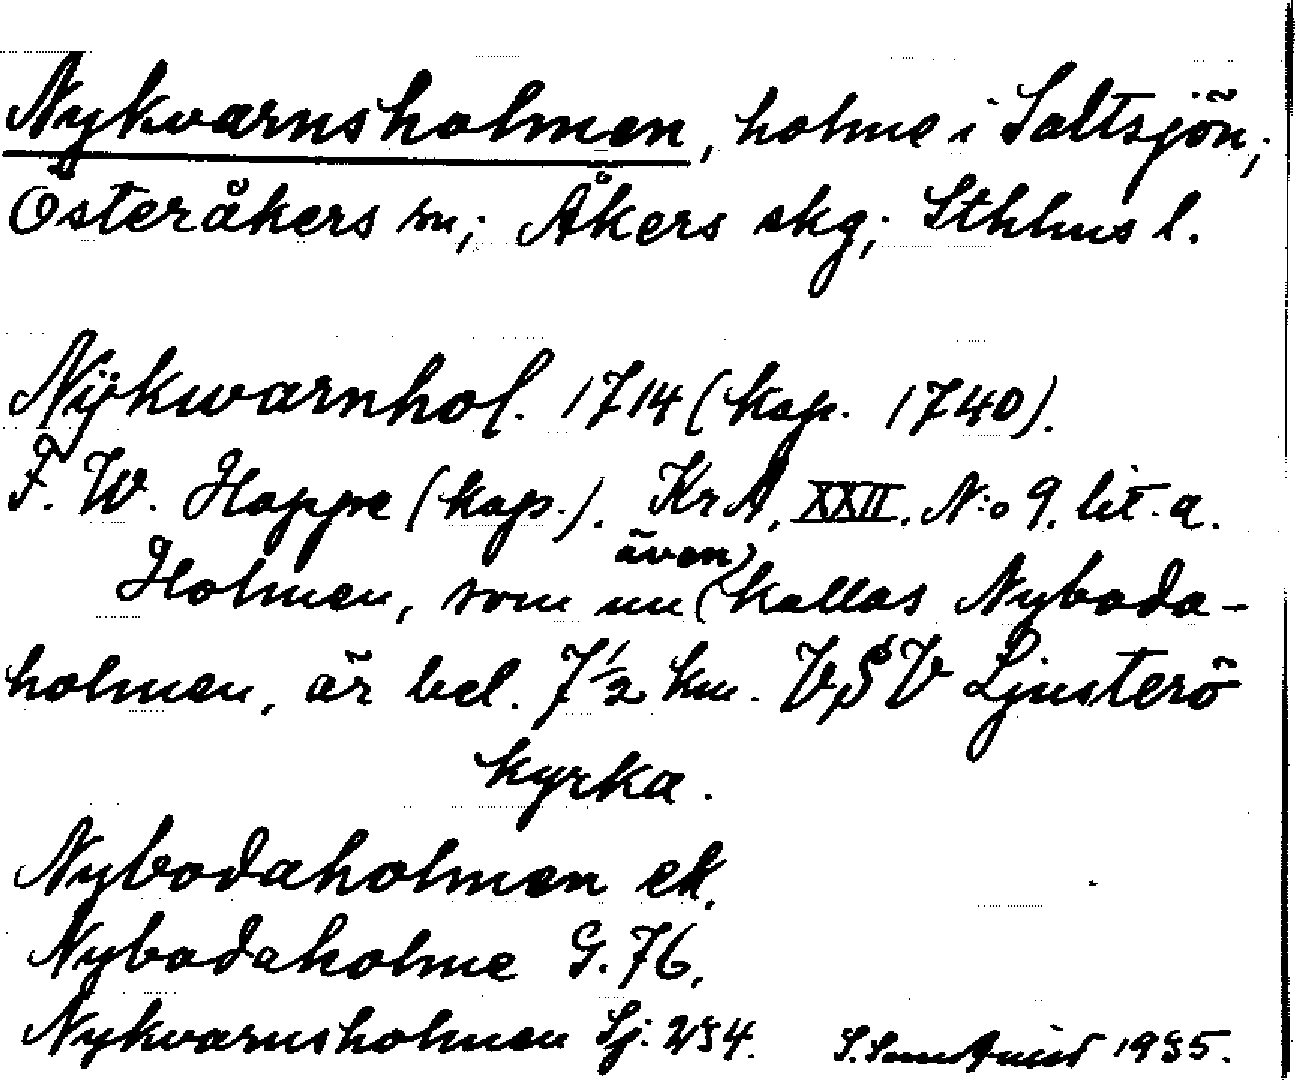 Nykvarnsholmen, holme i Saltsjön;
Österåkers sn; Åkers skg; Sthlms l.
Nÿkwarnhol. 1714 (kap. 1740).
F. W. Hoppe (kap.). KrA. XXII. N:o 9. lit. a.
även
Holmen, som nu (kallas Nyboda-
holmen, är bel. 7½ km. VSV Ljusterö
kyrka.
Nybodaholmen ek.
Nybodaholme G. 76.
Nykvarnsholmen Sj. 234.
1935.